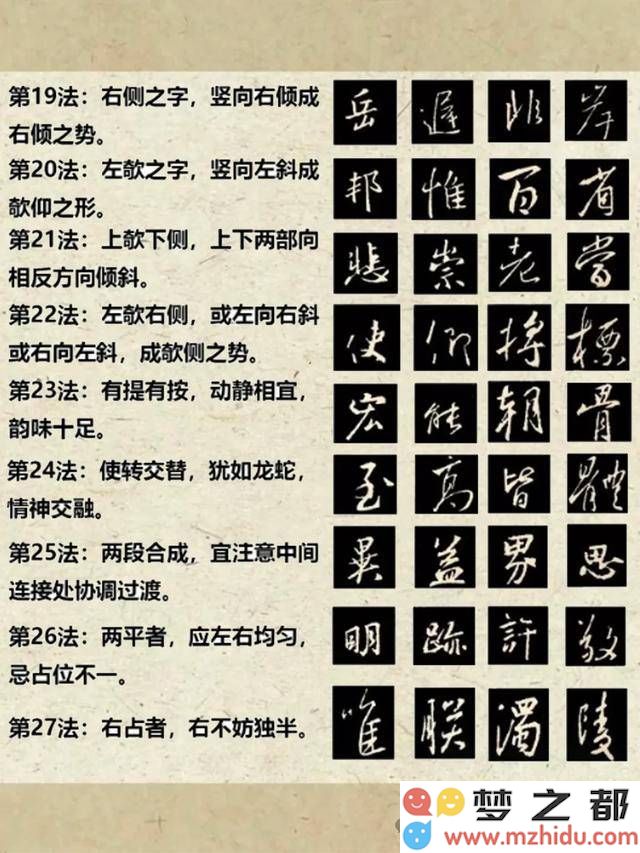 第19法：右侧之字，竖向右倾成
右倾之势。
岳 遲 此 岸
第20法：左欹之字，竖向左斜成
欹仰之形。
邦 惟 百 省
第21法：上欹下侧，上下两部向
相反方向倾斜。
悲 崇 老 當
第22法：左欹右侧，或左向右斜
或右向左斜，成欹侧之势。
使 仰 將 標
第23法：有提有按，动静相宜，
韵味十足。
宏 能 朝 骨
第24法：使转交替，犹如龙蛇，
情神交融。
至 高 皆 體
第25法：两段合成，宜注意中间
连接处协调过渡。
異 益 界 思
第26法：两平者，应左右均匀，
忌占位不一。
明 跡 許 敬
第27法：右占者，右不妨独半。
唯 联 濁 陵
梦之都
www.mzhidu.com